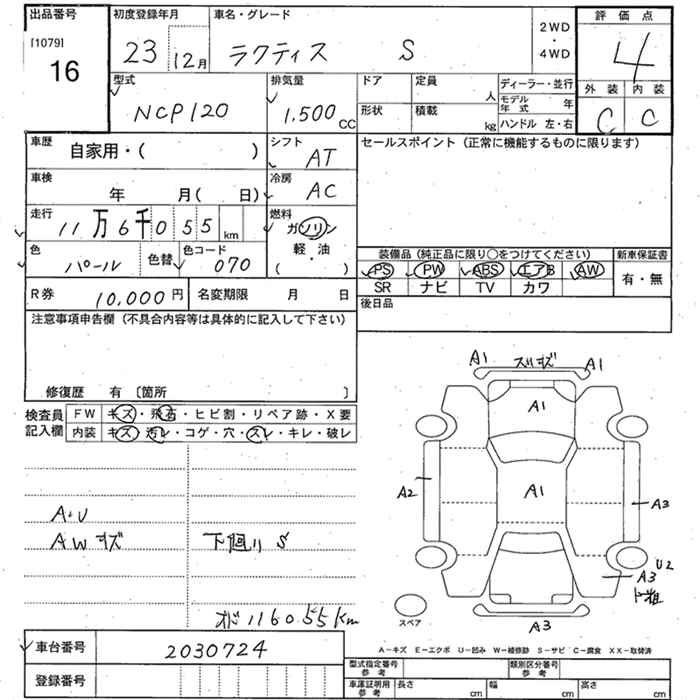 出品番号
[1079]
16
初度登録年月
23 12月
車名・グレード
ラクティス S
2WD
・
4WD
評価点
4
型式
NCP120
排気量
1,500 CC
ドア
定員
人
形状
積載
kg
ディーラー・並行
モデル年式 年
ハンドル 左・右
外装 内装
C C
車歴
自家用・( )
シフト
AT
車検
年 月( 日)
冷房
AC
走行
11万6千055 km
燃料
ガソリン
軽・油
( ・ )
色
パール
色替
色コード
070
セールスポイント(正常に機能するものに限ります)
装備品(純正品に限り○をつけてください)
新車保証書
PS PW ABS エアB AW
SR ナビ TV カワ
有・無
R券 10,000円
名変期限 月 日
後日品
注意事項申告欄(不具合内容等は具体的に記入して下さい)
修復歴 有 〔箇所 〕
検査員
記入欄
FW キズ・飛石・ヒビ割・リペア跡・X要
内装 キズ・汚レ・コゲ・穴・スレ・キレ・破レ
A・U
AWキズ
下廻り S
オド116055km
A1 スリキズ A1
A1
A2
A1
A3
U2
A3
A3
スペア
A-キズ E-エクボ U-凹み W-補修跡 S-サビ C-腐食 XX-取替済
車台番号
2030724
登録番号
型式指定番号
参考
類別区分番号
参考
車庫証明用
参考
長さ cm
幅 cm
高さ cm